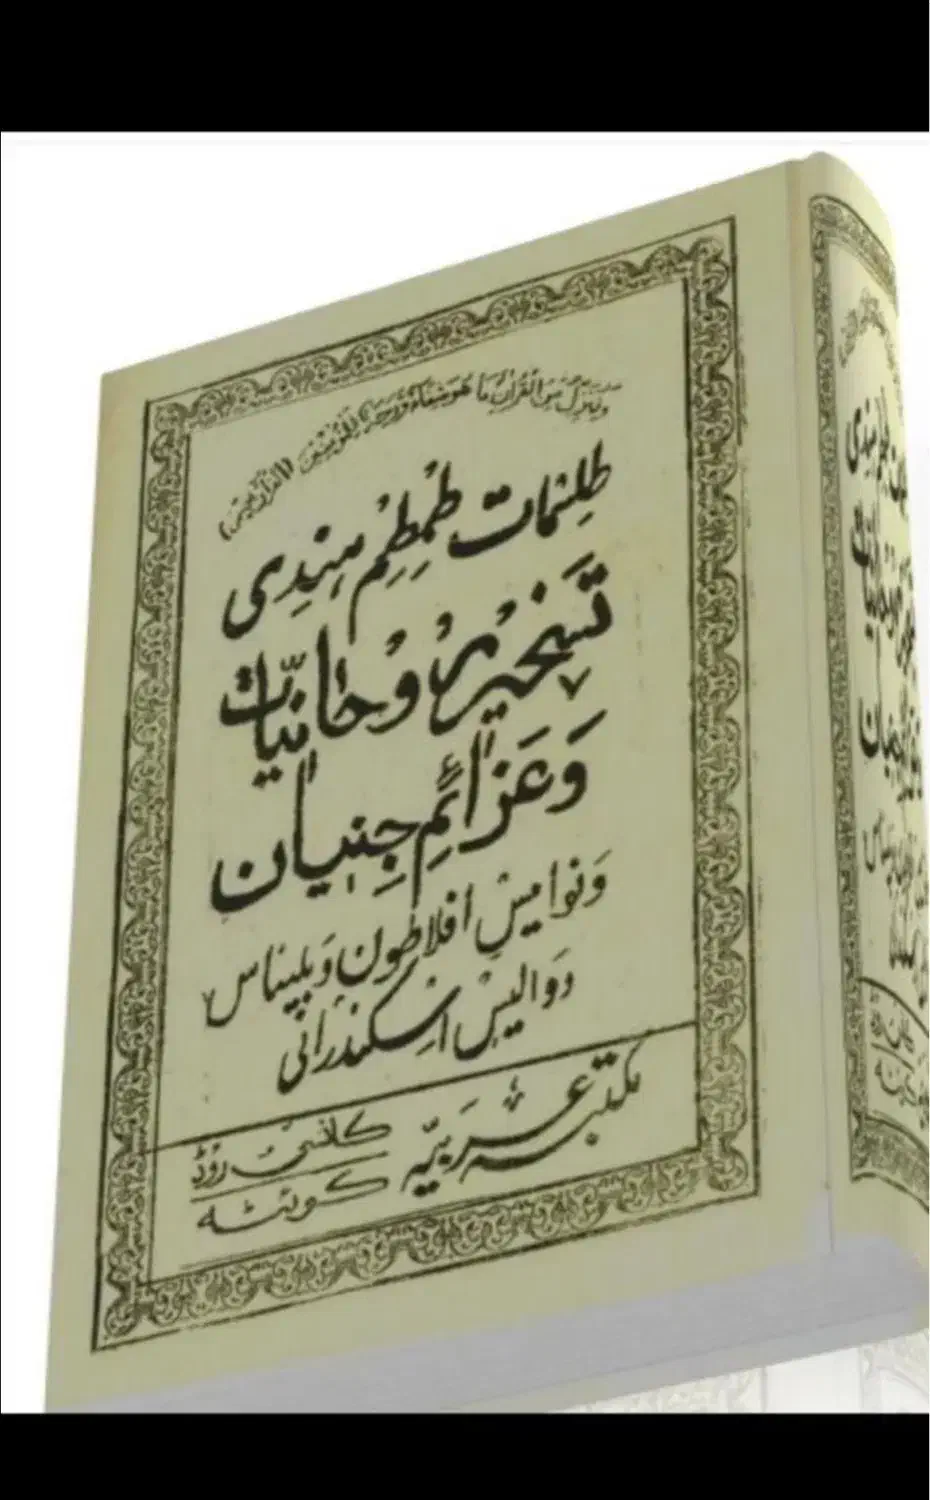 وَنُنَزِّلُ مِنَ الْقُرْآنِ مَا هُوَ شِفَاءٌ وَرَحْمَةٌ لِّلْمُؤْمِنِينَ
طلسمات طمطم ہندی
تسخیر روحانیات
وعزائم جنیان
ونوامیس افلاطون وبلیناس
ووالیس اسکندرانی
مکتبہ عربیّہ
کانسی روڈ
کوئٹہ